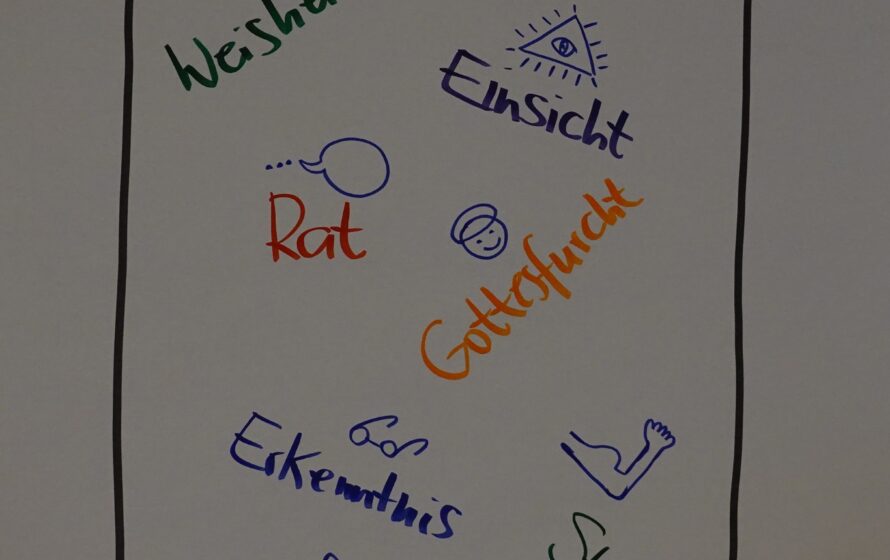 Weishe
Einsicht
Rat
Gottesfurcht
Erkenntnis